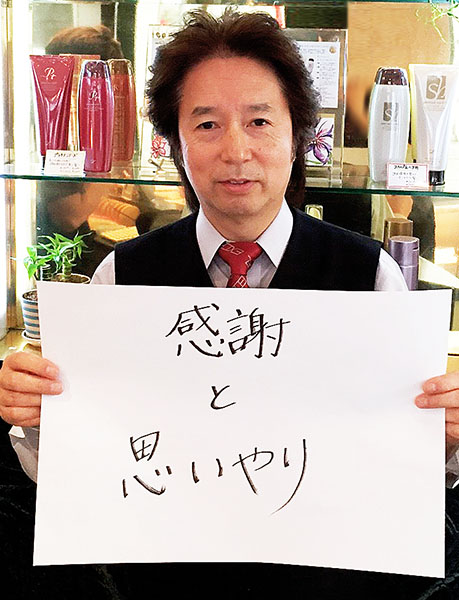 感謝
と
思いやり